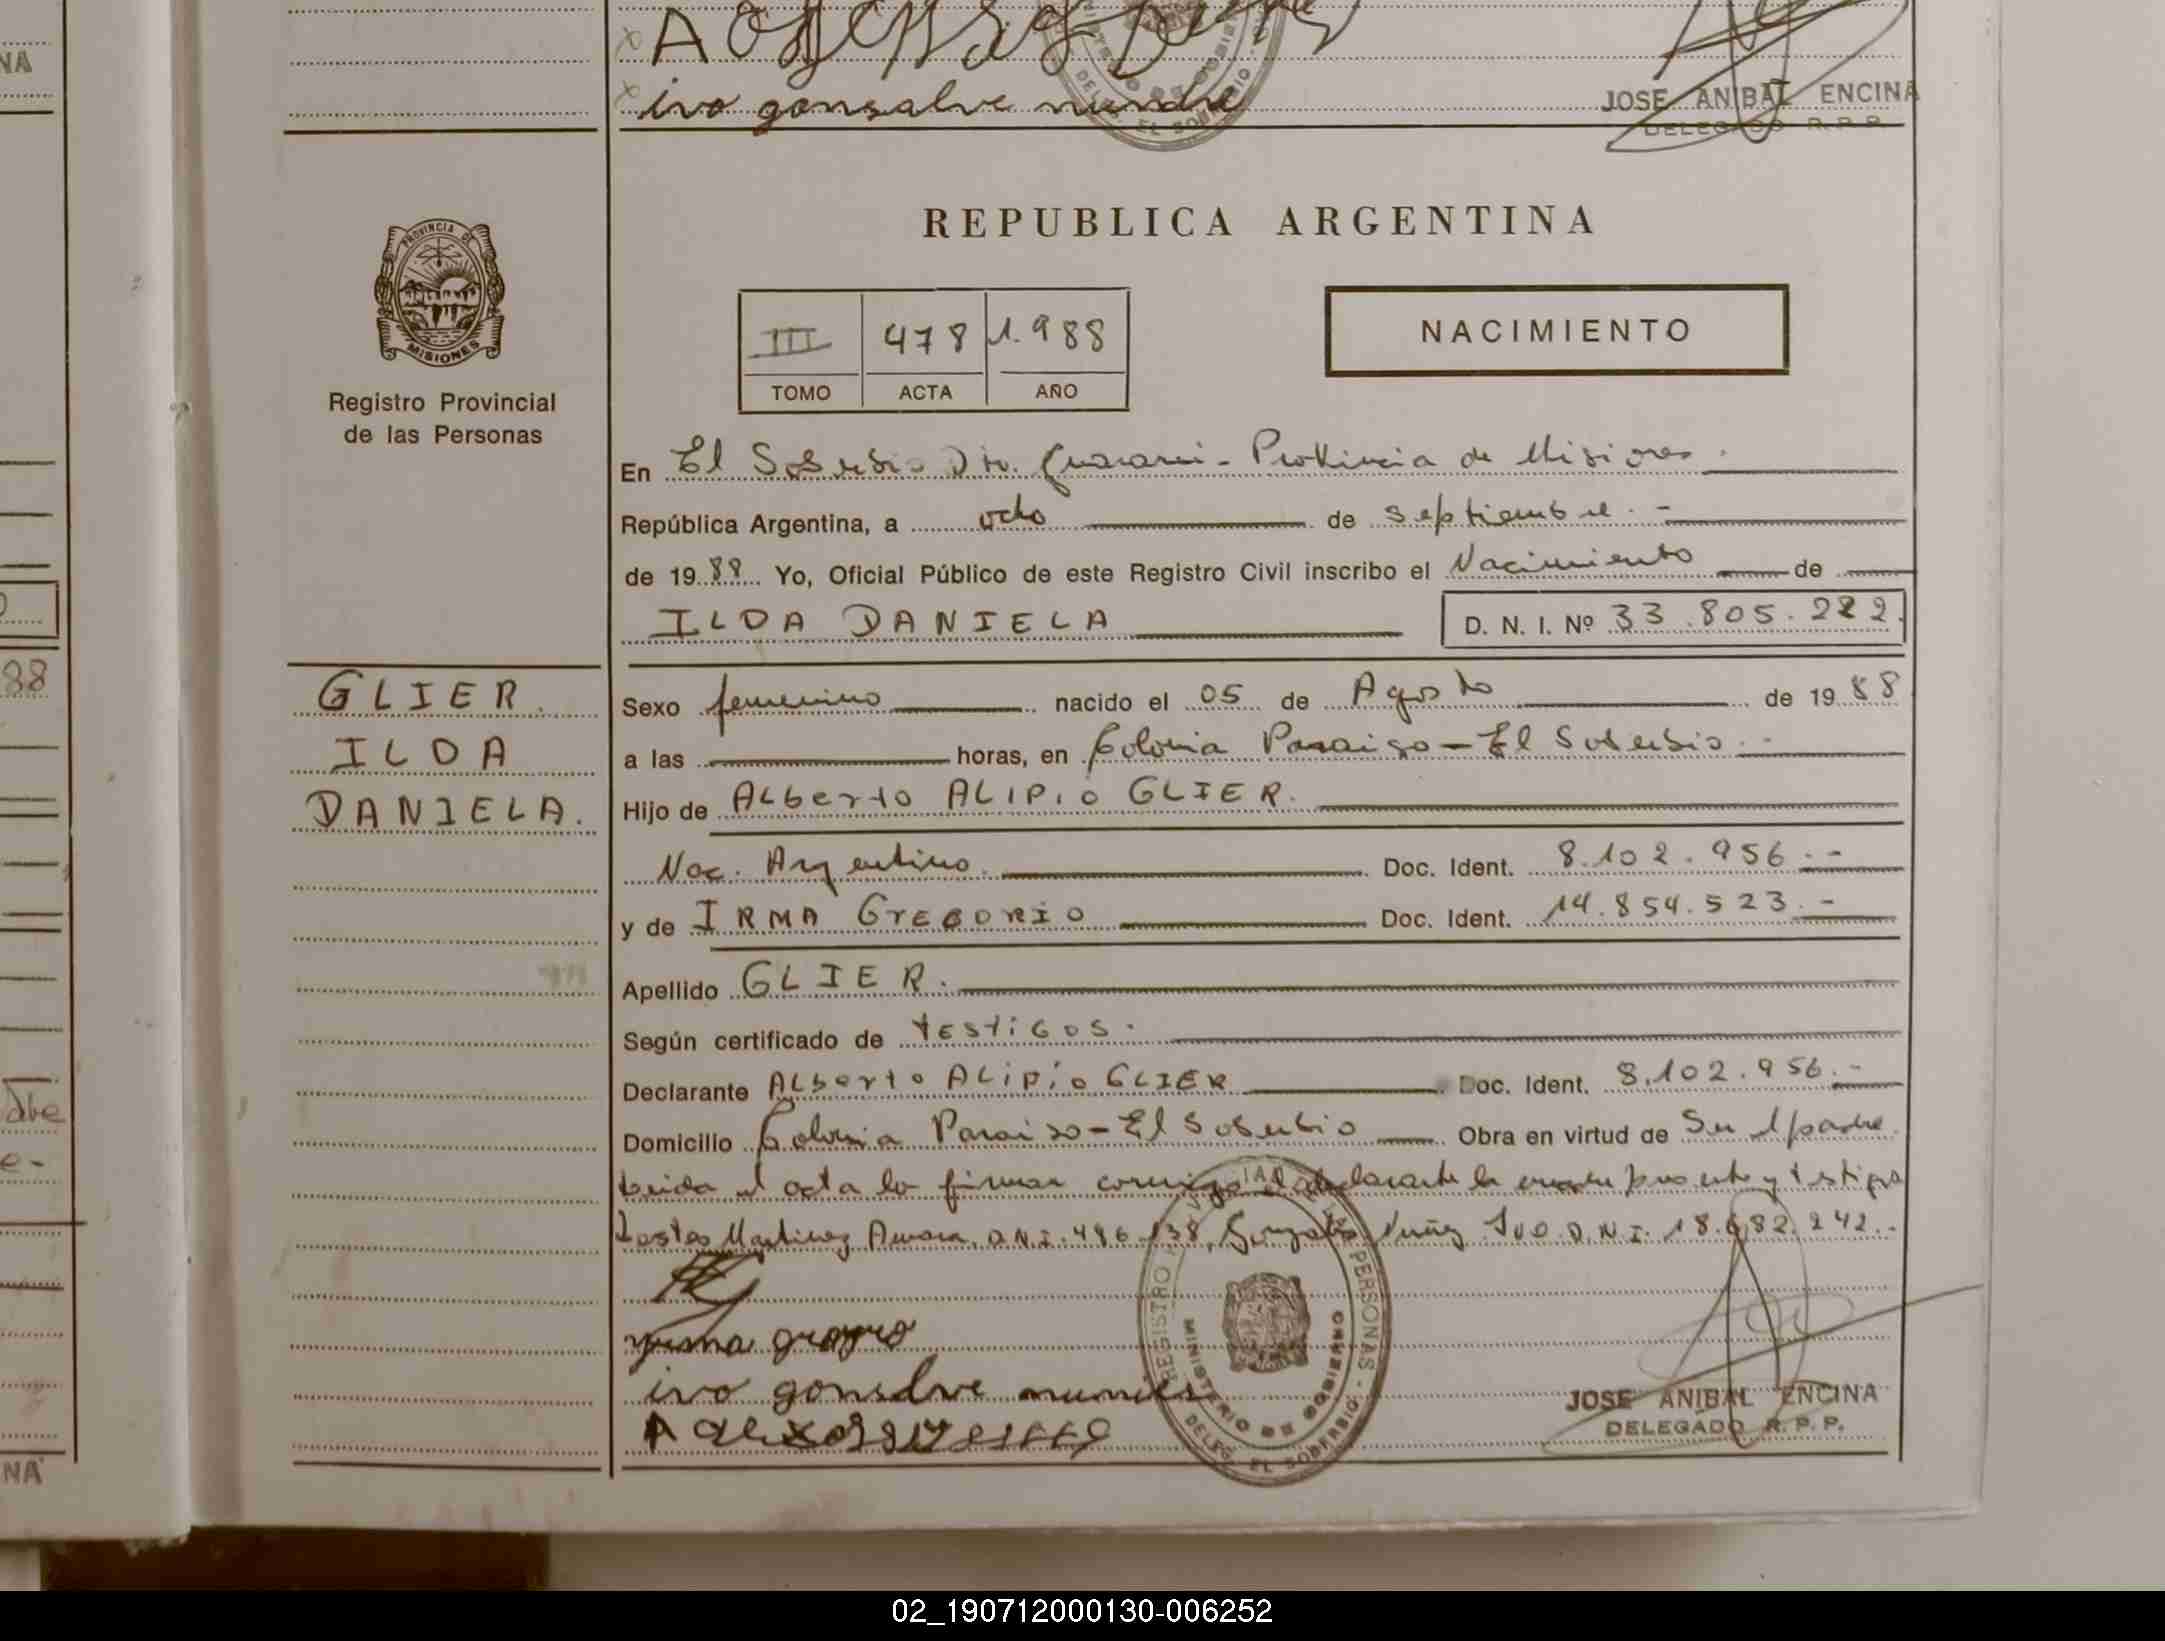 ivo gonsalve nundre
JOSE ANIBAL ENCINA
DELEGADO R. P. P.
NA
PROVINCIA DE
MISIONES
Registro Provincial
de las Personas
REPUBLICA ARGENTINA
III 478 1.988
TOMO ACTA AÑO
NACIMIENTO
En El Soberbio Dto. Guarani - Provincia de Misiones.
República Argentina, a ocho de septiembre. -
de 1988 Yo, Oficial Público de este Registro Civil inscribo el Nacimiento de
ILDA DANIELA D. N. I. Nº 33.805.222.
88
GLIER.
ILDA
DANIELA.
Sexo femenino nacido el 05 de Agosto de 1988
a las horas, en Colonia Paraiso - El Soberbio. -
Hijo de ALberto ALIPiO GLIER.
Nac. Argentino. Doc. Ident. 8.102.956.-
y de IRMA GreGORIO Doc. Ident. 14.854.523.-
Apellido GLIER.
Según certificado de testiGos.
Declarante ALberto ALiPio GLIER Doc. Ident. 8.102.956.-
Domicilio Colonia Paraiso - El Soberbio Obra en virtud de Ser el padre
Leida el acta la firman conmigo el declarante la madre presente y testigos
Martinez D.N.I. 486.138, Gonzalez Nuñez Ivo. D.N.I. 18.682.242.-
ivo gonsalve nunues
REGISTRO PERSONAS
MINISTERIO DE GOBIERNO
DELEG. EL SOBERBIO
JOSE ANIBAL ENCINA
DELEGADO R. P. P.
NA
02_190712000130-006252